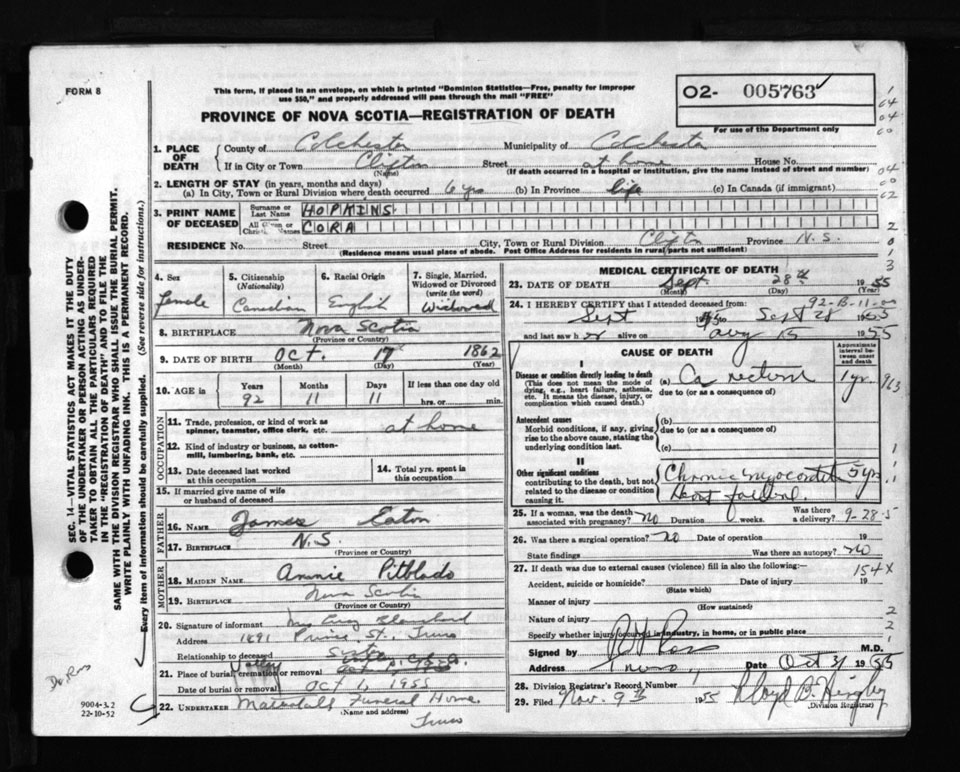 FORM 8
This form, if placed in an envelope, on which is printed "Dominion Statistics—Free, penalty for improper
use $50," and properly addressed will pass through the mail "FREE"
O2- 005763
For use of the Department only
PROVINCE OF NOVA SCOTIA—REGISTRATION OF DEATH
1. PLACE OF DEATH County of Colchester Municipality of Colchester
If in City or Town Clifton (Name) Street at home House No.
(If death occurred in a hospital or institution, give the name instead of street and number)
2. LENGTH OF STAY (in years, months and days)
(a) In City, Town or Rural Division where death occurred 6 yrs (b) In Province life (c) In Canada (if immigrant)
3. PRINT NAME OF DECEASED Surname or Last Name HOPKINS
All Given or Christ. Names CORA
RESIDENCE No. Street City, Town or Rural Division Clifton Province N.S.
(Residence means usual place of abode. Post Office Address for residents in rural parts not sufficient)
4. Sex Female
5. Citizenship (Nationality) Canadian
6. Racial Origin English
7. Single, Married, Widowed or Divorced (write the word) Widowed
8. BIRTHPLACE Nova Scotia
(Province or Country)
9. DATE OF BIRTH Oct. 17 1862
(Month) (Day) (Year)
10. AGE in Years 92 Months 11 Days 11 If less than one day old hrs. or min.
OCCUPATION
11. Trade, profession, or kind of work as spinner, teamster, office clerk, etc. at home
12. Kind of industry or business, as cotton-mill, lumbering, bank, etc.
13. Date deceased last worked at this occupation
14. Total yrs. spent in this occupation
15. If married give name of wife or husband of deceased
FATHER
16. NAME James Eaton
17. BIRTHPLACE N.S.
(Province or Country)
MOTHER
18. MAIDEN NAME Annie Pitblado
19. BIRTHPLACE Nova Scotia
(Province or Country)
20. Signature of informant Mrs Blanchard
Address Prince St., Truro
Relationship to deceased
21. Place of burial, cremation or removal
Date of burial or removal Oct 1, 1955
22. UNDERTAKER Funeral Home
(Name and address) Truro
MEDICAL CERTIFICATE OF DEATH
23. DATE OF DEATH Sept. 28th 1955
(Month) (Day) (Year)
92-B-11-00
24. I HEREBY CERTIFY that I attended deceased from:
Sept 1955 to Sept 28 1955
and last saw her alive on Aug 15 1955
CAUSE OF DEATH
Approximate interval between onset and death
I
Disease or condition directly leading to death (a) Ca rectum 1 yr.
(This does not mean the mode of dying, e.g., heart failure, asthenia, etc. It means the disease, injury, or complication which caused death.)
due to (or as a consequence of)
Antecedent causes
Morbid conditions, if any, giving rise to the above cause, stating the underlying condition last.
(b)
due to (or as a consequence of)
(c)
II
Other significant conditions contributing to the death, but not related to the disease or condition causing it. Chronic myocarditis 5 yrs.
Heart failure.
25. If a woman, was the death associated with pregnancy? no Duration weeks. Was there a delivery? 9-28-5
26. Was there a surgical operation? no Date of operation 19
State findings Was there an autopsy? no
27. If death was due to external causes (violence) fill in also the following:— 154X
Accident, suicide or homicide? Date of injury 19
(State which)
Manner of injury
(How sustained)
Nature of injury
Specify whether injury occurred in industry, in home, or in public place
Signed by Ross M.D.
Address Truro Date Oct 31 1955
28. Division Registrar's Record Number
29. Filed Nov. 9th 1955 Lloyd B.
(Division Registrar)
SEC. 14—VITAL STATISTICS ACT MAKES IT THE DUTY
OF THE UNDERTAKER OR PERSON ACTING AS UNDER-
TAKER TO OBTAIN ALL THE PARTICULARS REQUIRED
IN THE "REGISTRATION OF DEATH" AND TO FILE THE
SAME WITH THE DIVISION REGISTRAR WHO SHALL ISSUE THE BURIAL PERMIT.
WRITE PLAINLY WITH UNFADING INK. THIS IS A PERMANENT RECORD.
Every item of information should be carefully supplied. (See reverse side for instructions.)
9004-3.2
22-10-52